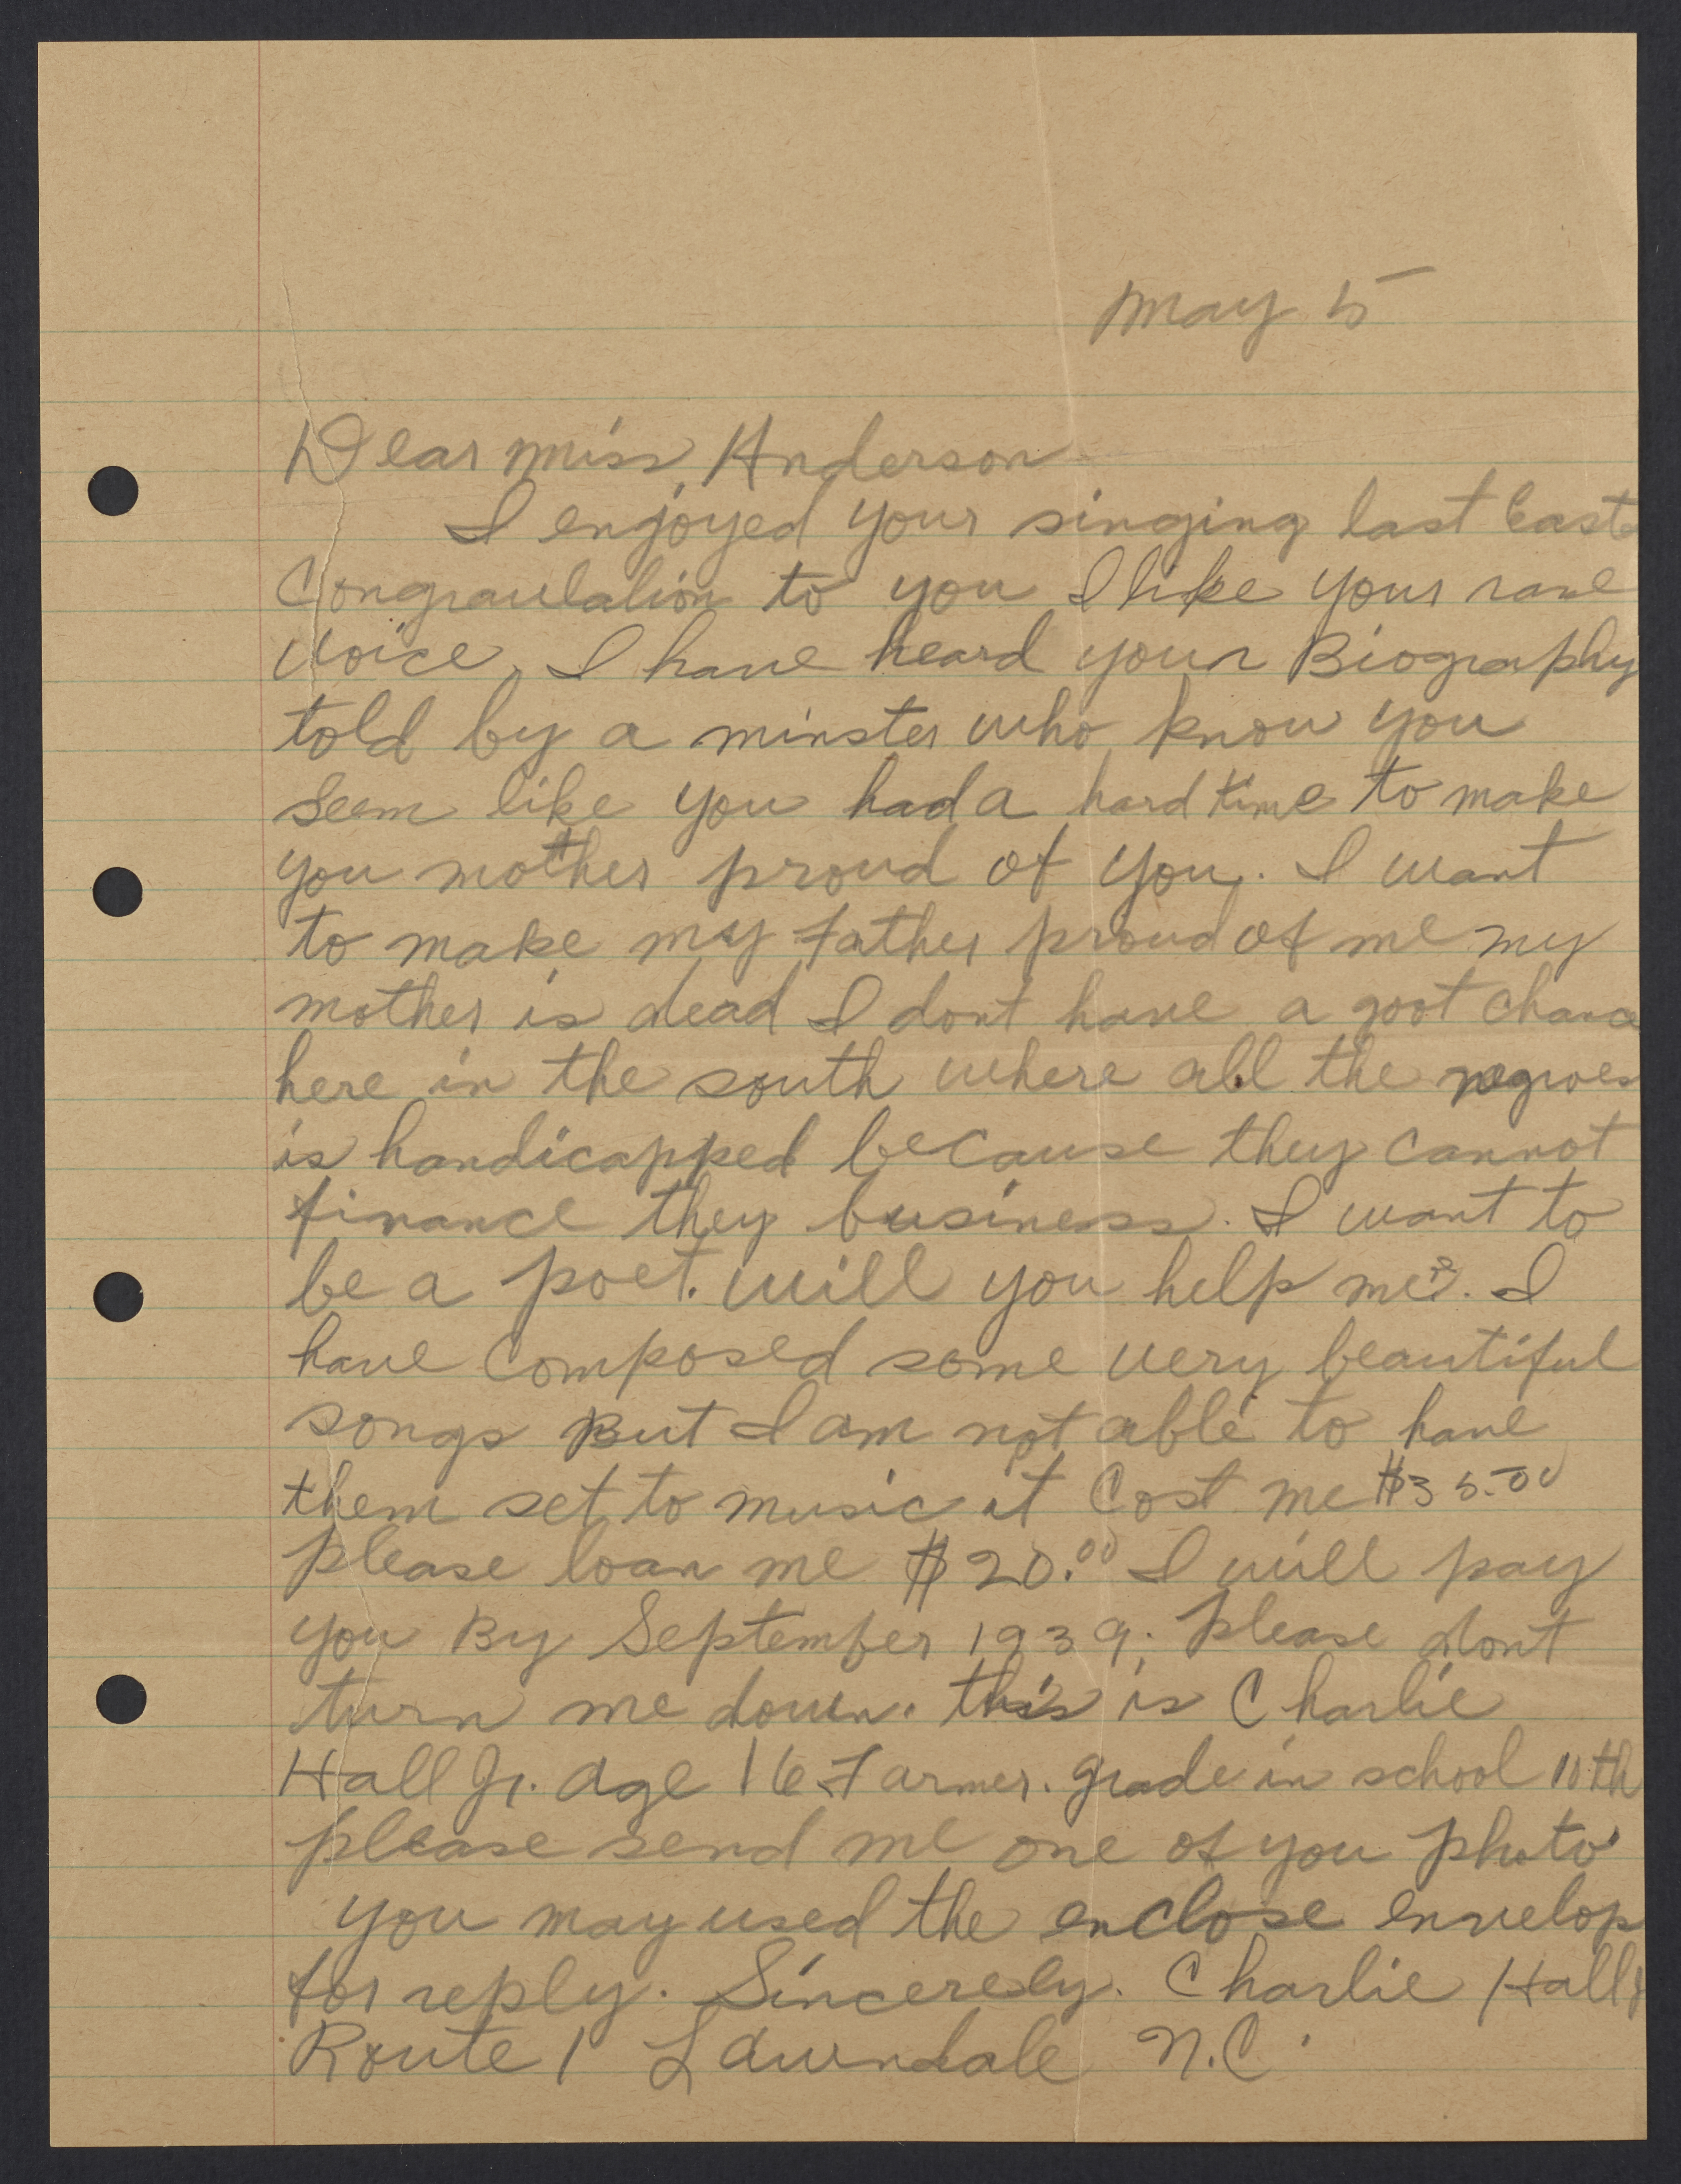 May 5
Dear Miss, Anderson
I enjoyed your singing last East
Congraulation to you I like your rare
voice, I have heard your Biography
told by a minster who know you
seem like you had a hard time to make
you mother proud of you. I want
to make my father proud of me my
mother is dead I dont have a goot chance
here in the south where all the negroes
is handicapped because they cannot
finance they business. I want to
be a poet. will you help me?. I
have composed some very beautiful
songs But I am not able to have
them set to music it Cost me $35.00
please loan me $20.00 I will pay
you By September 1939. please dont
turn me down. this is Charlie
Hall Jr. age 16 Farmer. grade in school 10th
please send me one of you photo
you may used the enclose envelop
for reply. Sincerely. Charlie Hall
Route 1 Lawndale N.C.